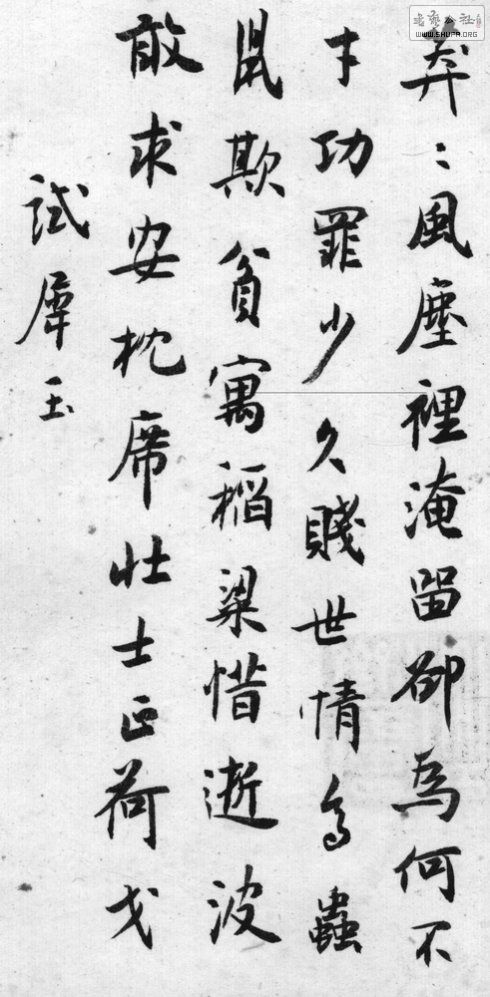 莽〻風塵裡淹留卻為何不
才功罪少久賤世情多蟲
鼠欺貧寓稻粱惜逝波
敢求安枕席壯士正荷戈
試犀玉
WWW.SHUFA.ORG